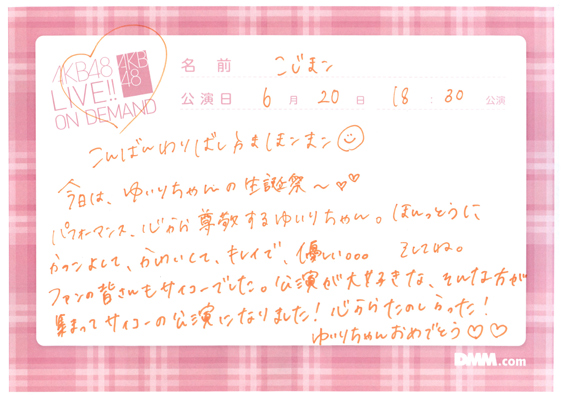 AKB48
LIVE!!
ON DEMAND
AKB
48
名 前 こじまこ
公演日 6 月 20 日 18 : 30 公演
こんばんわ
今日は、ゆいりちゃんの生誕祭〜♡♡
パフォーマンス、心から尊敬するゆいりちゃん。ほんっとうに、
かっこよくて、かわいくて、キレイで、優しい。。。 そしてね。
ファンの皆さんもサイコーでした。公演が大好きな、そんな方が
集まってサイコーの公演になりました！心からたのしかった！
ゆいりちゃんおめでとう♡♡
DMM.com